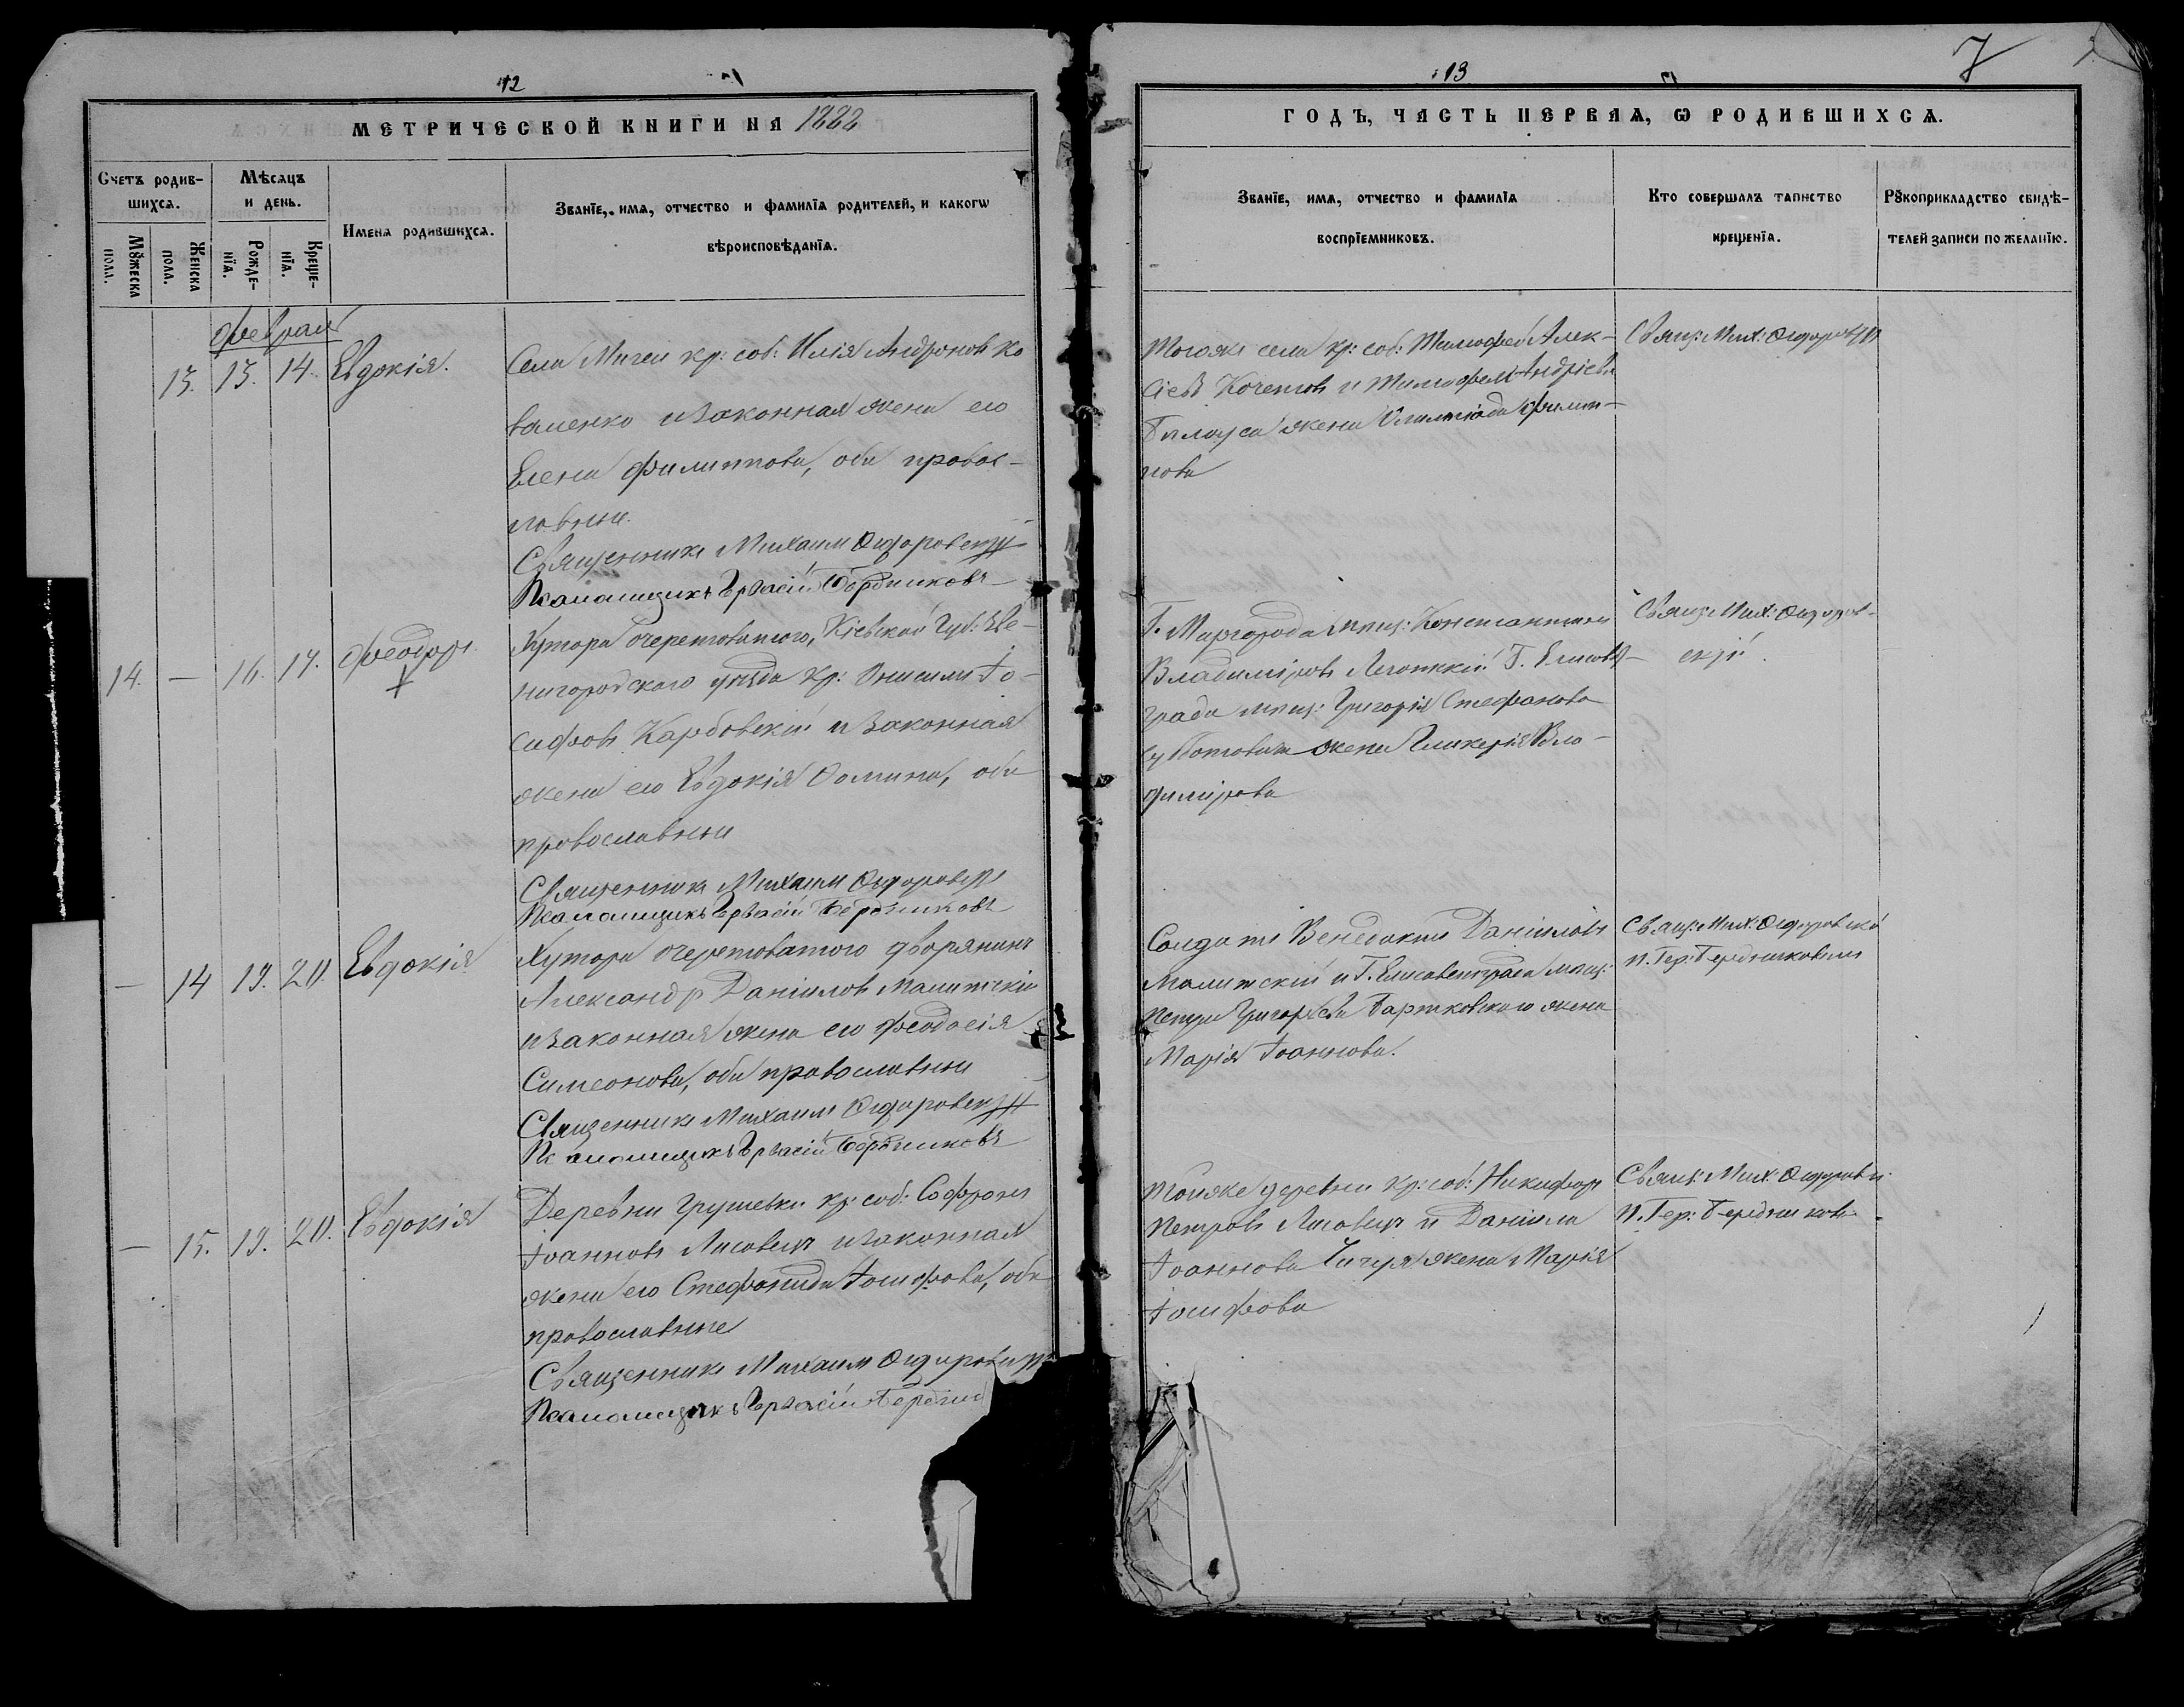 12
МЕТРИЧЕСКОЙ КНИГИ НА 1882
Счетъ родив-
шихся.
Мѣсяцъ
и день.
Имена родившихся.
Званїе, имя, отчество и фамилїя родителей, и какогѡ
вѣроисповѣданїя.
Мꙋжеска
пола.
Женска
пола.
Рожде-
нїя.
Креще-
нїя.
Февраль
13. 13. 14. Евдокія.
Села Мигеи кр: соб: Илія Андроновъ Ко
валенко и законная жена его
Елена Филиппова, оба правос-
лавные.
Священникъ Михаилъ Ѳедоровскій
Псаломщикъ Гервасій Бердниковъ
14. — 16. 17. Феодоръ
Хутора Очеретоватого, Кіевской Губ: Зве-
нигородского уѣзда кр: Онисимъ Іо-
сифовъ Карбовскій и законная
жена его Евдокія Ѳомина, оба
православные
Священникъ Михаилъ Ѳедоровскій
Псаломщикъ Гервасій Бердниковъ
— 14 19. 20. Евдокія
Хутора Очеретоватого дворянинъ
Александръ Даніиловъ Малитскій
и законная жена его Феодосія
Симеонова, оба православные
Священникъ Михаилъ Ѳедоровскій
Псаломщикъ Гервасій Бердниковъ
— 15. 19. 20. Евдокія
Деревни Грушевки кр: соб: Софронъ
Іоанновъ Лисовецъ и законная
жена его Стефанида Іосифова, оба
православные
Священникъ Михаилъ Ѳедоровскій
Псаломщикъ Гервасій Бердник
13
7
ГОДЪ, ЧАСТЬ ПЕРВАЯ, Ѡ РОДИВШИХСЯ.
Званїе, имя, отчество и фамилїя
воспрїемниковъ.
Кто совершалъ таинство
крещенїя.
Рꙋкоприкладство свидѣ-
телей записи по желанїю.
Тогоже села кр: соб: Тимофей Алек-
сіевъ Кочетовъ и Тимофея Андріева
Билоуса жена Олимпіада Филип-
пова
Свящ: Мих: Ѳедоровскій
Г. Миргорода мѣщ: Константинъ
Владиміровъ и Г. Елисавет-
града мѣщ: Григорія Стефанова
жена Гликерія Вла-
димірова
Свящ: Мих: Ѳедоров-
скій.
Солдатъ Венедиктъ Даніиловъ
Малитскій и Г. Елисаветграда мѣщ:
Петра Григорьева Бартковского жена
Марія Іоаннова.
Свящ: Мих: Ѳедоровскій
п. Гер: Бердниковымъ
Тойже деревни кр: соб: Никифоръ
Петровъ Лисовецъ и Даніила
Іоаннова жена Марія
Іосифова
Свящ: Мих: Ѳедоровскій
п. Гер: Бердниковъ